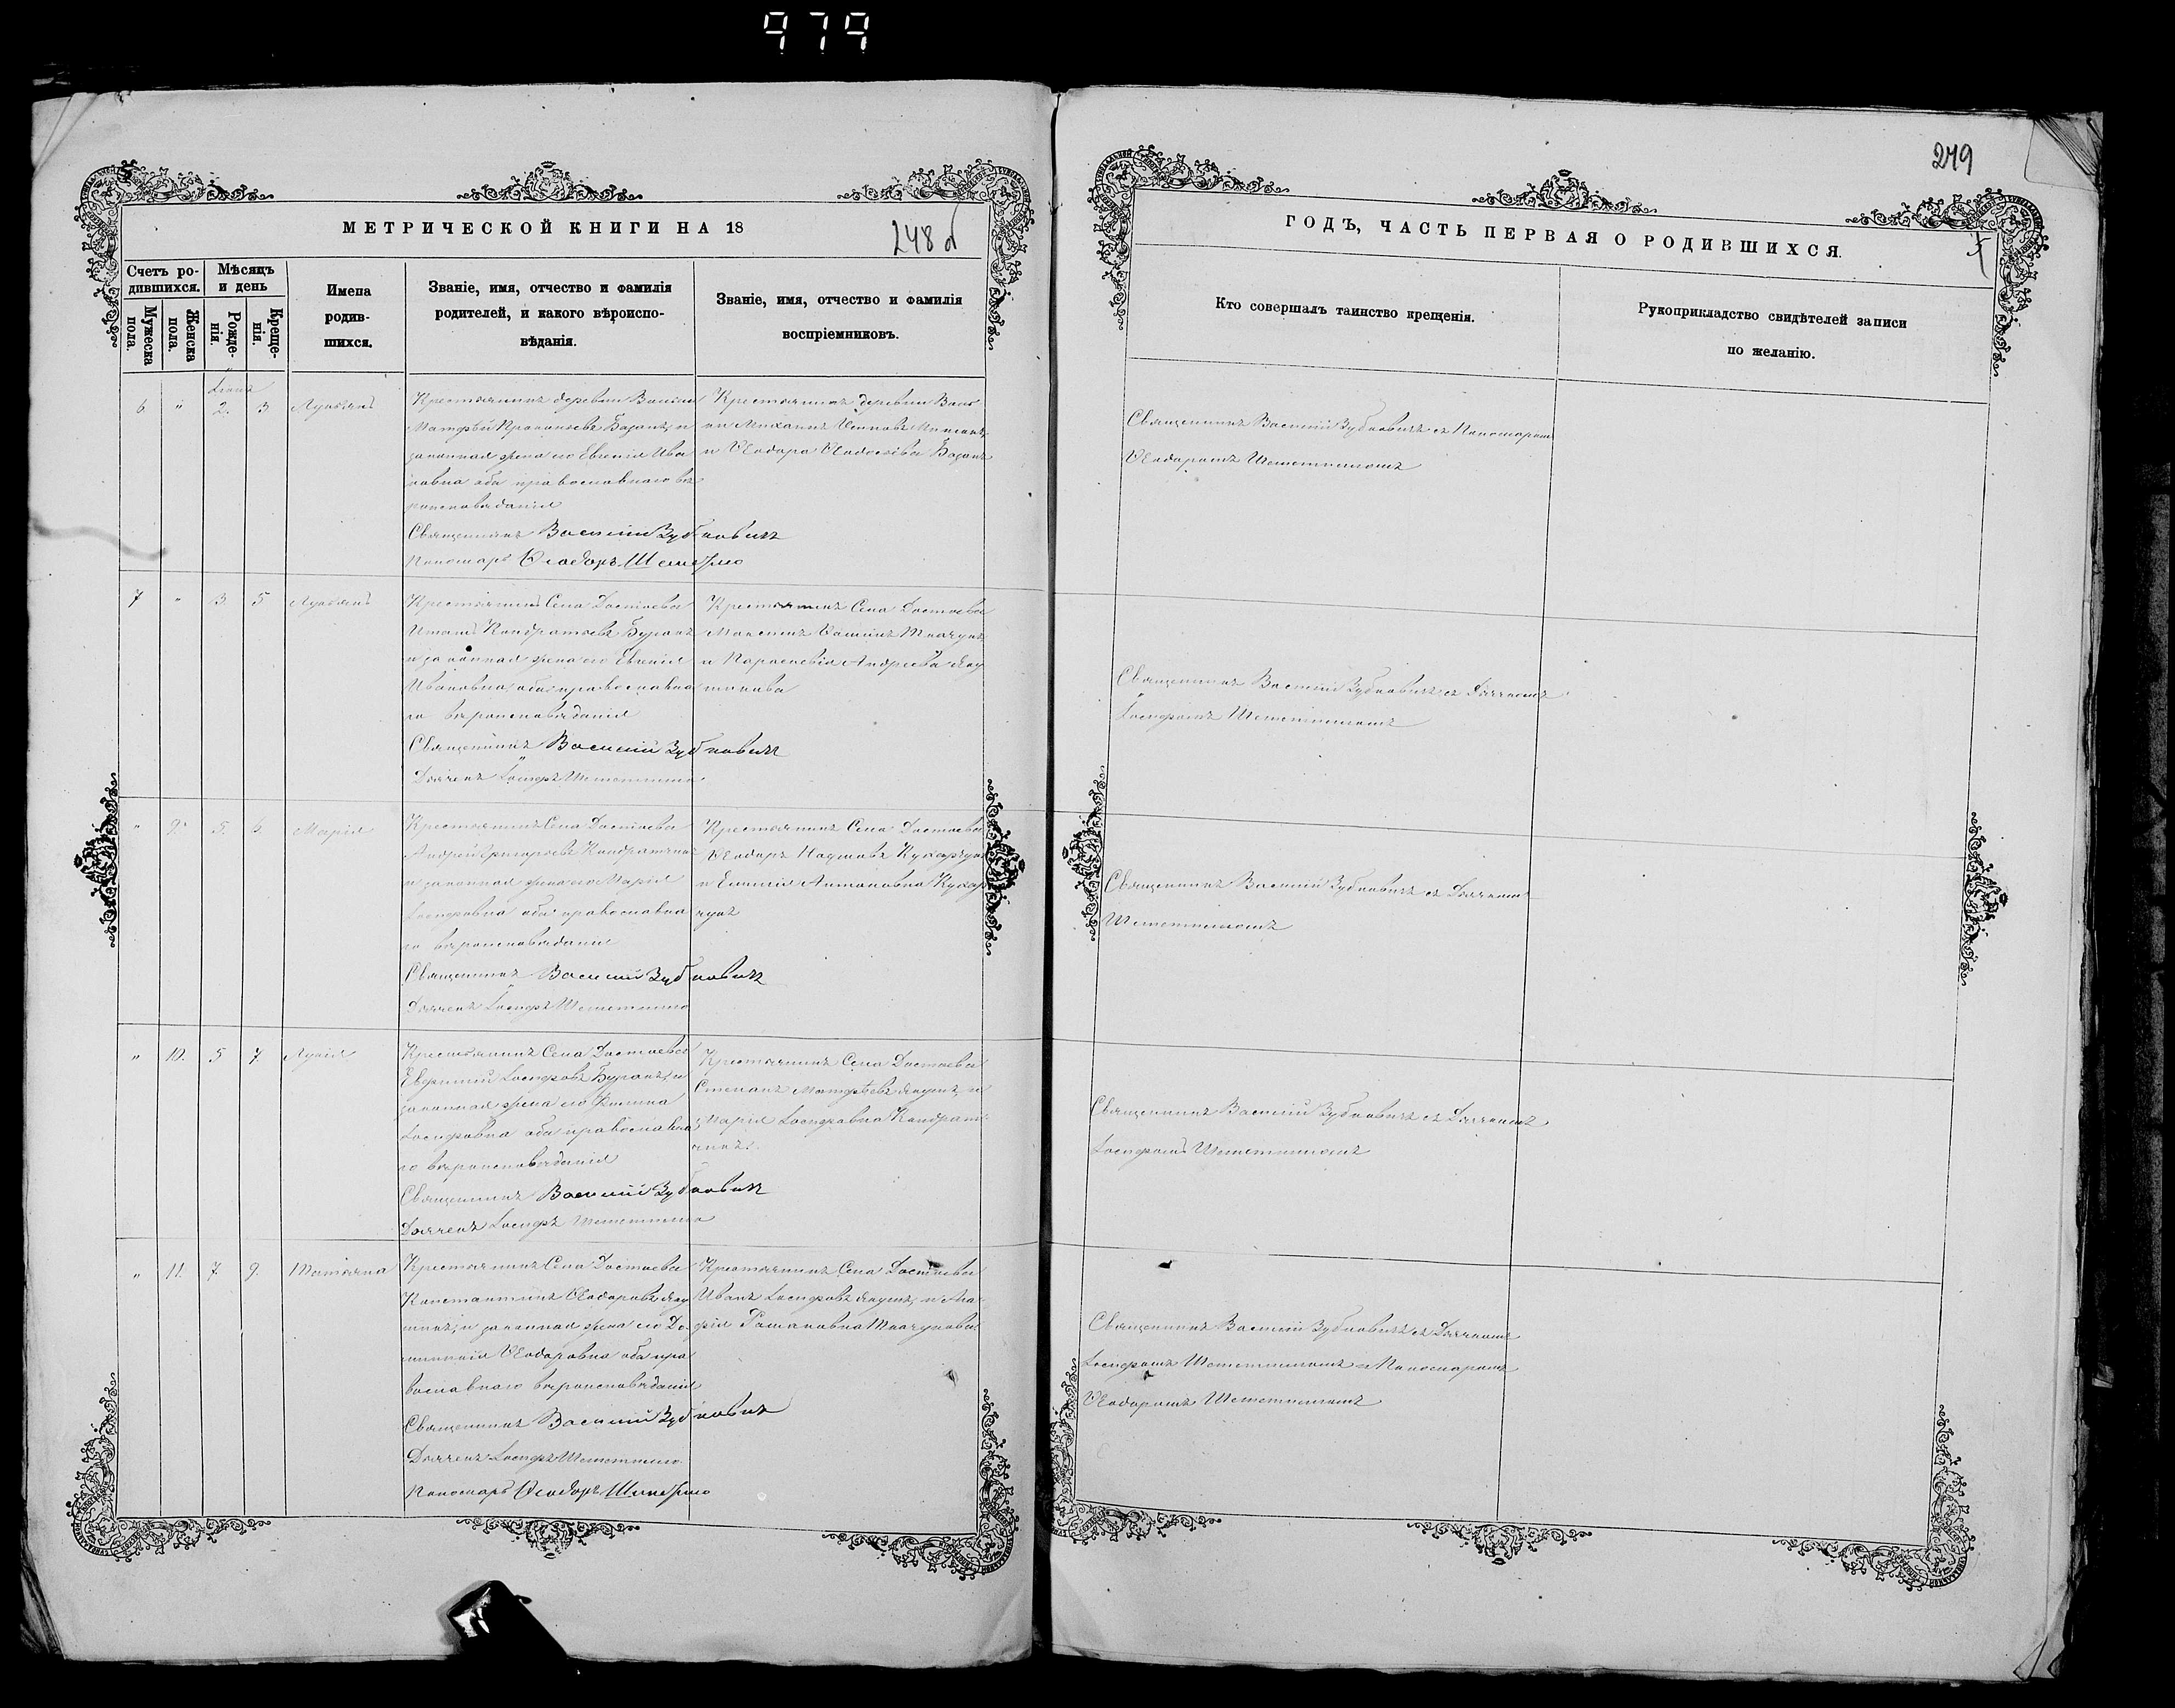 979
МЕТРИЧЕСКОЙ КНИГИ НА 18
248 б
Счетъ ро-
дившихся.
Мужеска
пола.
Женска
пола.
Мѣсяцъ
и день
Рожде-
нія.
Креще-
нія.
Имена
родив-
шихся.
Званіе, имя, отчество и фамилія
родителей, и какого вѣроиспо-
вѣданія.
Званіе, имя, отчество и фамилія
воспріемниковъ.
6 " 2. 3 Лукіянъ
Крестьянинъ деревни
Матѳѣй Прокопьевъ и
законная жена его Евгенія Ива
новна оба православнаго вѣ
роисповѣданія
Священникъ Василій Зубковичъ
Пономарь Ѳеодоръ
Крестьянинъ деревни
Михаилъ
и Ѳеодора Ѳеодосіева
7 " 3. 5 Лукіянъ
Крестьянинъ Села Достоева
Кондратьевъ Буракъ
и законная жена его Евгенія
Ивановна, оба православна
го вѣроисповѣданія
Священникъ Василій Зубковичъ
Дьячекъ Іосифъ Шеметилло
Крестьянинъ Села Достоева
Максимъ Ткачукъ
и Параскевія Андреева
" 9. 5. 6. Марія
Крестьянинъ Села Достоева
Андрей Григорьевъ
и законная жена его Марія
Іосифовна оба православна
го вѣроисповѣданія
Священникъ Василій Зубковичъ
Дьячекъ Іосифъ Шеметилло
Крестьянинъ Села Достоева
Ѳеодоръ Наумовъ Кухарчукъ
и Антоновна Кухар
чукъ
" 10. 5 7. Лукія
Крестьянинъ Села Достоева
Евфимій Іосифовъ Буракъ, и
законная жена его
Іосифовна оба православна
го вѣроисповѣданія
Священникъ Василій Зубковичъ
Дьячекъ Іосифъ Шеметилло
Крестьянинъ Села Достоева
Степанъ Матѳѣевъ и
Марія Іосифовна
" 11. 7. 9. Татьяна
Крестьянинъ Села Достоева
Константинъ Ѳеодоровъ
и законная жена его До
Ѳеодоровна оба пра
вославнаго вѣроисповѣданія
Священникъ Василій Зубковичъ
Дьячекъ Іосифъ Шеметилло
Пономарь Ѳеодоръ
Крестьянинъ Села Достоева
Иванъ Іосифовъ
Романовна Ткачукова
249
ГОДЪ, ЧАСТЬ ПЕРВАЯ О РОДИВШИХСЯ.
Кто совершалъ таинство крещенія.
Рукоприкладство свидѣтелей записи
по желанію.
Священникъ Василій Зубковичъ съ Пономаремъ
Ѳеодоромъ Шеметилломъ
Священникъ Василій Зубковичъ съ Дьячкомъ
Іосифомъ Шеметилломъ
Священникъ Василій Зубковичъ съ Дьячкомъ
Шеметилломъ
Священникъ Василій Зубковичъ съ Дьячкомъ
Іосифомъ Шеметилломъ
Священникъ Василій Зубковичъ съ Дьячкомъ
Іосифомъ Шеметилломъ и Пономаремъ
Ѳеодоромъ Шеметилломъ